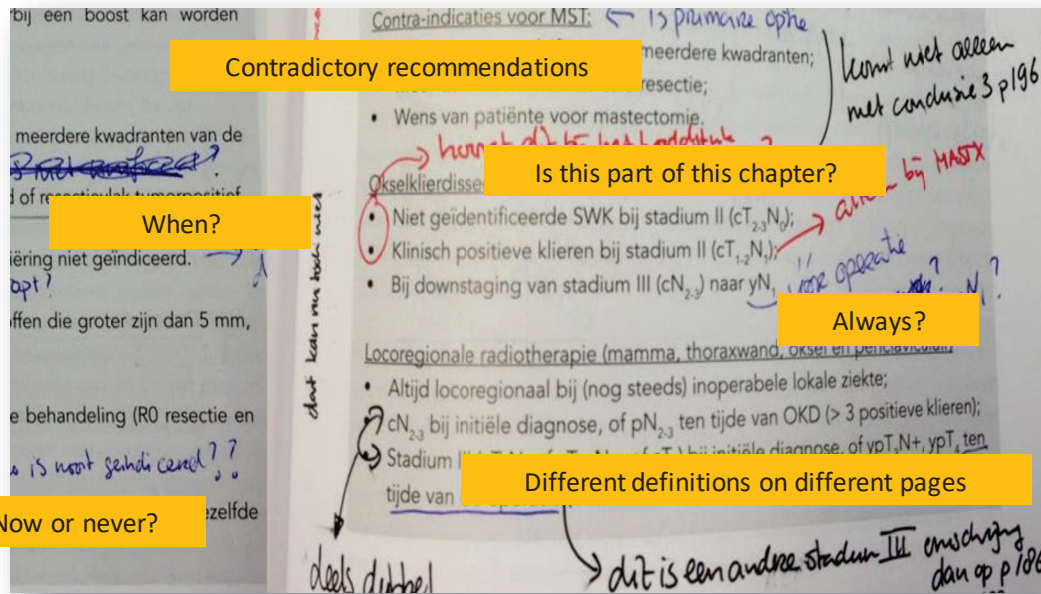 bij een boost kan worden
meerdere kwadranten van de
When?
iëring niet geïndiceerd.
offen die groter zijn dan 5 mm,
e behandeling (R0 resectie en
is nooit geïndiceerd??
Now or never?
ezelfde
Contra-indicaties voor MST:
← is primaire optie
Contradictory recommendations
meerdere kwadranten;
resectie;
• Wens van patiënte voor mastectomie.
komt niet alleen
met conclusie 3 p196
Is this part of this chapter?
Okselklierdisse
• Niet geïdentificeerde SWK bij stadium II (cT2-3N0);
• Klinisch positieve klieren bij stadium II (cT1-2N1);
bij MASTX
• Bij downstaging van stadium III (cN2-3) naar yN1
vóór operatie
Always?
dat kan nu toch niet
Locoregionale radiotherapie (mamma, thoraxwand, oksel en periclaviculair)
• Altijd locoregionaal bij (nog steeds) inoperabele lokale ziekte;
cN2-3 bij initiële diagnose, of pN2-3 ten tijde van OKD (> 3 positieve klieren);
Stadium
bij initiële diagnose, of ypT3N+, ypT4 ten
tijde van
Different definitions on different pages
deels dubbel
→ dit is een andere stadium III omschrijving
dan op p186